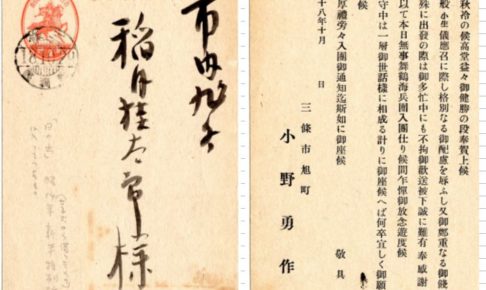 秋冷の候高堂益々御健勝の段奉賀上候
般小生儀應召に際し格別なる御配慮を辱ふし又御鄭重なる御餞
殊に出發の際は御多忙中にも不拘御歡送被下誠に難有奉感謝
以て本日無事舞鶴海兵團入團仕り候間乍憚御放念遊度候
守中は一層御世話樣に相成る計りに御座候へば何卒宜しく御願
候
厚禮旁々入團御通知迄斯如に御座候 敬具
十八年十月 日
三條市旭町
小野勇作
市内
稲月桂太郎様
「日の出」